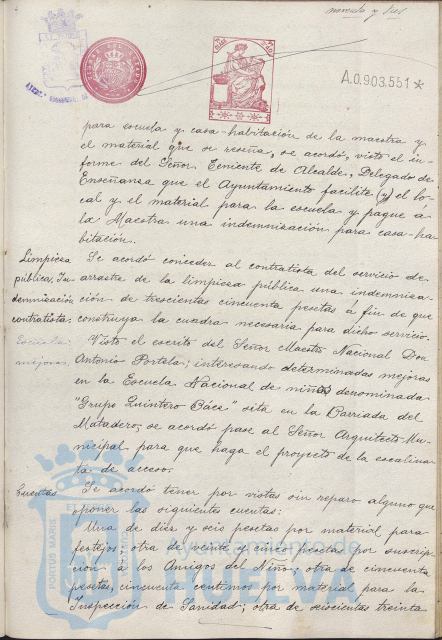 noventa y tres
A.0.903.551*
para escuela y casa-habitación de la maestra y
el material que se reseña, se acordó, visto el in-
forme del Señor Teniente de Alcalde, Delegado de
Enseñanza que el Ayuntamiento facilite (y) el lo-
cal y el material para la escuela y pague a
la Maestra una indemnisación para casa-ha-
bitación.
Limpiesa pública. Indemnización contratista:
Se acordó conceder al contratista del servicio de
arrastre de la limpiesa pública una indemnisa-
ción de trescientas cincuenta pesetas á fin de que
construya la cuadra necesaria para dicho servicio.
Escuela: mejoras,
Visto el escrito del Señor Maestro Nacional Don
Antonio Portela; interesando determinadas mejoras
en la Escuela Nacional de niños denominada
"Grupo Quintero Báez" sita en la Barriada del
Matadero; se acordó pase al Señor Arquitecto Mu-
nicipal para que haga el proyecto de la escalina-
ta de acceso.
Cuentas
Se acordó tener por vistas sin reparo alguno que
oponer las siguientes cuentas:
Una de diez y seis pesetas por material para
festejos: otra de veinte y cinco pesetas por suscrip-
ción á los Amigos del Niño; otra de cincuenta
pesetas, cincuenta centimos por material para la
Inspección de Sanidad; otra de seiscientas treinta
PORTUS MARIS
Ayuntamiento de
HUELVA